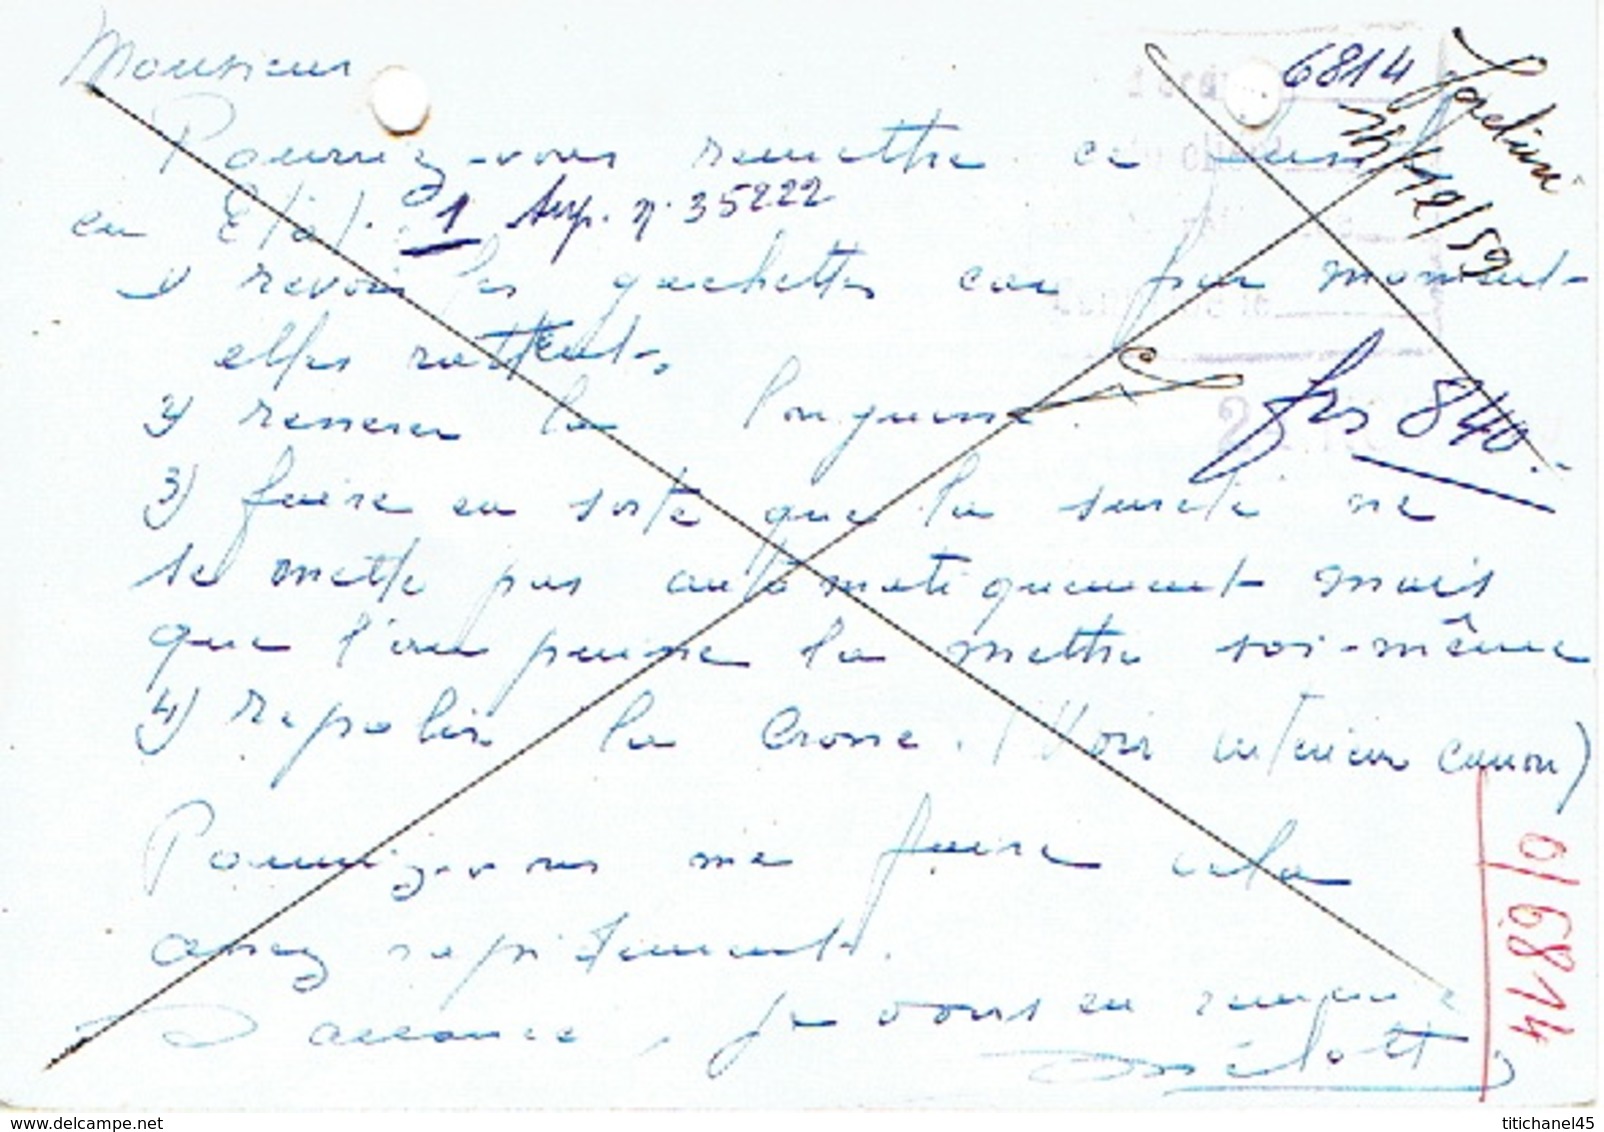 Monsieur
6814
Pourriez-vous remettre ce fusil
en Etat. 1 Sup. n. 35222
1) revoir les gachettes car par moment
elles rattent.
2) resserrer la longuesse
frs 840.-
3) faire en sorte que la sureté ne
se mette pas automatiquement mais
que l'on puisse la mettre soi-même
4) repolir la crosse. (Voir intérieur canon)
Pourriez-vous me faire cela
assez rapidement.
D'avance, je vous en remercie
6814/9
www.delcampe.net
titichanel45